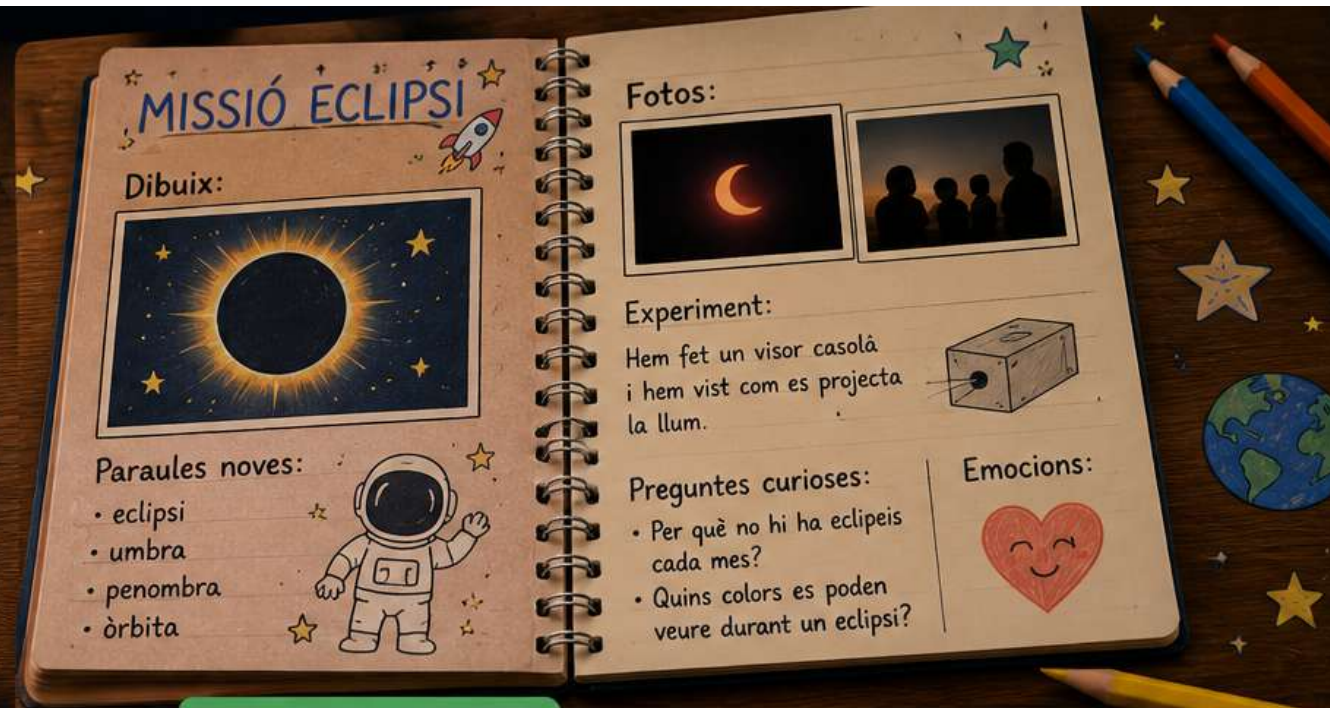 MISSIÓ ECLIPSI
Dibuix:
Paraules noves:
• eclipsi
• umbra
• penombra
• òrbita
Fotos:
Experiment:
Hem fet un visor casolà
i hem vist com es projecta
la llum.
Preguntes curioses:
• Per què no hi ha eclipeis
cada mes?
• Quins colors es poden
veure durant un eclipsi?
Emocions: